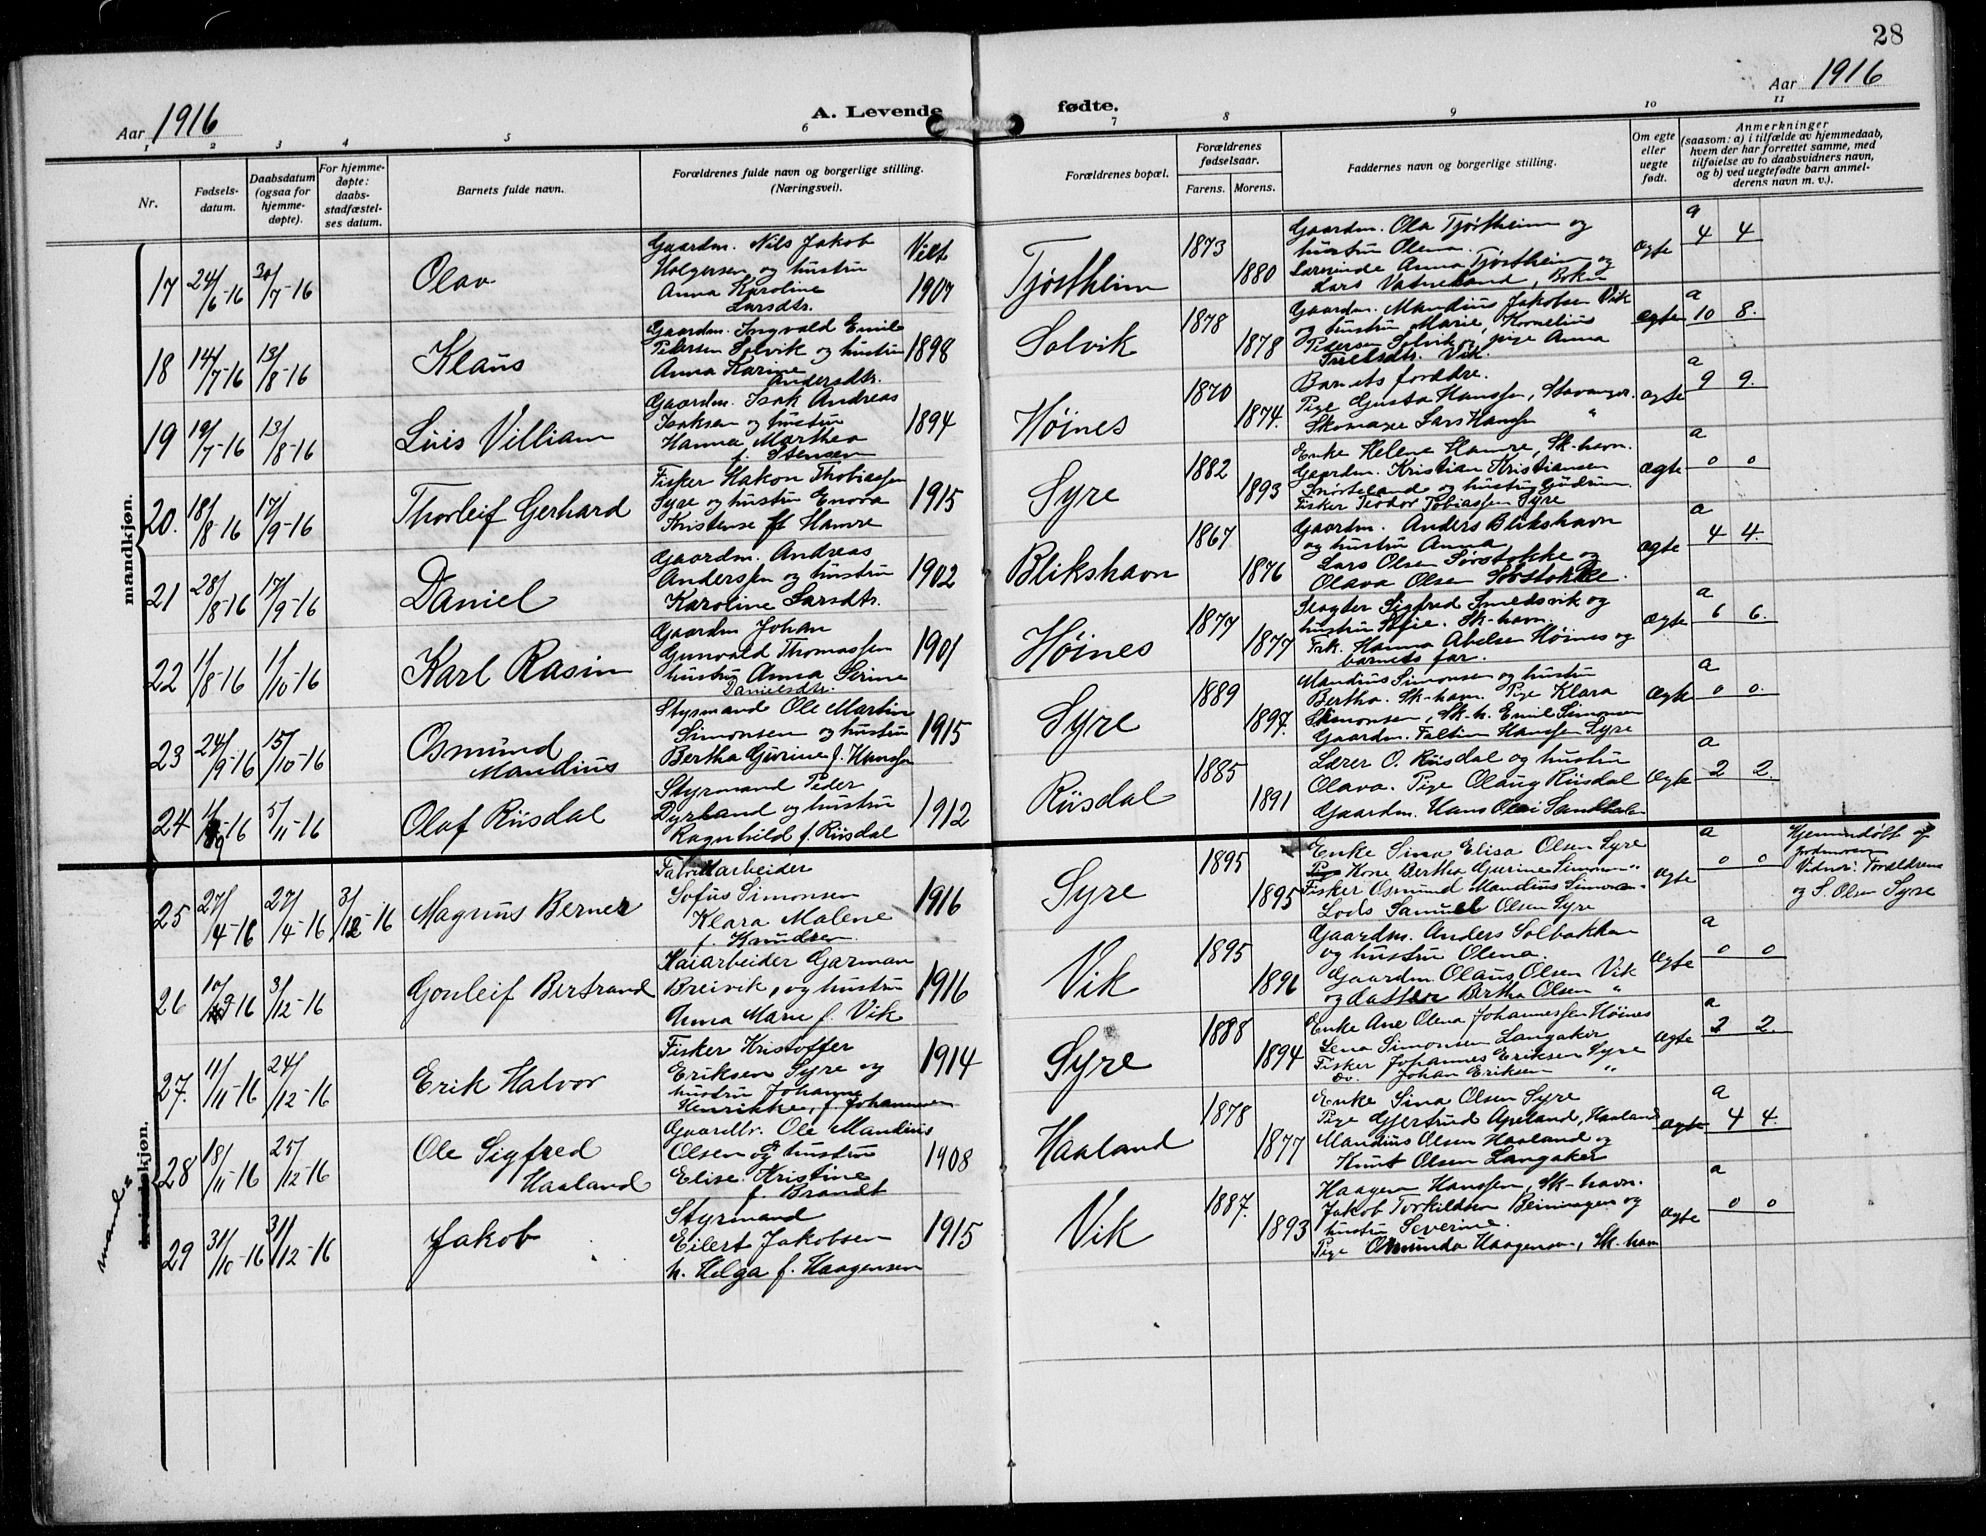 28
Aar 1916
A. Levende fødte.
Aar 1916
1 2 3 4 5 6 7 8 9 10 11
Nr.
Fødsels-
datum.
Daabsdatum
(ogsaa for
hjemme-
døpte).
For hjemme-
døpte:
daabs-
stadfæstel-
ses datum.
Barnets fulde navn.
Forældrenes fulde navn og borgerlige stilling.
(Næringsvei).
Forældrenes bopæl.
Forældrenes
fødselsaar.
Farens. Morens.
Faddernes navn og borgerlige stilling.
Om egte
eller
uegte
født.
Anmerkninger
(saasom: a) i tilfælde av hjemmedaab,
hvem der har forrettet samme, med
tilføielse av to daabsvidners navn,
og b) ved uegtefødte barn anmel-
derens navn m. v.).
mandkjøn.
17 24/6-16 30/7-16 Olav
Gaardm. Nils Jakob
Holgersen og hustru
Anna Karoline
Larsdtr.
Viet
1907
Tjøstheim 1873 1880
Gaardm. Ola Tjøstheim og
hustru Olena.
Lærerinde Anna Tjøstheim og
Lars Vatneland, Bokn
ægte a 4 4
18 14/7-16 13/8-16 Klaus
Gaardm. Ingvald Emil
Pedersen Solvik og hustru
Anna Karine
Andersdtr.
1898
Solvik 1878 1878
Gaardm. Mandius Jakobsen Vik
og hustru Marie, Kornelius
Pedersen Solvik og pige Anna
Vik.
ægte a 10 8.
19 19/7-16 13/8-16 Luis Villiam
Gaardm. Isak Andreas
Isaksen og hustru
Hanna Marthea
f. Stensen
1894
Høines 1870 1874.
Barnets forældre.
Pige Gusta Hanssen, Stavanger.
Skomager Lars Hansen "
ægte a 9 9.
20. 18/8-16 17/9-16 Thorleif Gerhard
Fisker Hakon Thobiassen
Syre og hustru Enora
Kristense f. Hamre
1915
Syre 1882 1893
Enke Helene Hamre, Sk-havn.
Gaardm. Kristian Kristiansen
og hustru Gudrun.
Fisker Teodor Tobiassen Syre
ægte a 0 0
21 28/8-16 17/9-16 Daniel
Gaardm. Andreas
Anderssen og hustru
Karoline Larsdtr.
1902
Blikshavn 1867 1876
Gaardm. Anders Blikshavn
og hustru Anna
Lars Olsen Sørstokke og
Olava Olsen Sørstokke.
ægte a 4 4.
22 11/8-16 1/10-16 Karl Rasin
Gaardm Johan
Gunvald Thomassen
hustru Anna Serine
Danielsdtr.
1901
Høines 1877 1877
Slagter Sigfred Smedsvik og
hustru Sk-havn.
Frk. Hanna Abelsen Høines og
barnets far.
ægte a 6 6.
23 24/9-16 15/10-16 Osmund
Mandius
Styrmand Ole Martin
Simonsen og hustru
Bertha Gurine f. Hanssen
1915
Syre 1889 1897.
Mandius Simonsen og hustru
Bertha. Sk-havn. Pige Klara
Simonsen, Sk-h. Emil Simonsen
Gaardm. Faltin Hanssen Syre
ægte a 0 0.
24 11/9-16 5/11-16 Olaf Riisdal
Styrmand Peder
Dyrland og hustru
Ragnhild f. Riisdal
1912
Riisdal 1885 1891
Lærer O. Riisdal og hustru
Olava. Pige Olaug Riisdal
Gaardm. Hans Olai Sandhaland
ægte a 2 2.
25 27/4-16 27/4-16 3/12-16 Magnus Berner
Fabrikkarbeider
Sofus Simonsen
Klara Malene
f. Knudsen.
1916
Syre 1895 1895
Enke Sina Elisa Olsen Syre
Kone Bertha Gurine Simonsen "
Fisker Osmund Mandius Simonsen "
Lods Samuel Olsen Syre
ægte a 0 0
Hjemmedøbt af
jordmoren
Vidner: Forældrene
og S. Olsen Syre
26 10/9-16 3/12-16 Gonleif Bertrand
Kaiarbeider Garman
Breivik, og hustru
Anna Marie f. Vik
1916
Vik 1895 1896
Gaardm. Anders Solbakken
og hustru Olena.
Gaardm. Olaus Olsen Vik
og datter Bertha Olsen "
ægte a 0 0
27. 11/11-16 24/12-16 Erik Halvor
Fisker Kristoffer
Eriksen Syre og
hustru Johanne
Henrikke, f. Johannessen
1914
Syre 1888 1894
Enke Ane Olena Johannessen Høines
Lena Simonsen Langaker
Fisker Johannes Eriksen Syre
Do. Johan Eriksen "
ægte a 2 2
mands
kvindekjøn.
28 18/11-16 25/12-16 Ole Sigfred
Haaland
Gaardbr. Ole Mandius
Olsen og hustru
Elise Kristine
f. Brandt
1908
Haaland 1878 1877
Enke Sina Olsen Syre
Pige Gjertrud Apeland, Haaland
Mandius Olsen Haaland og
Knut Olsen Langaker
ægte a 4 4.
29 31/10-16 31/12-16 Jakob
Styrmand
Eilert Jakobsen
h. Helga f. Haagensen
1915
Vik 1887. 1893
Haagen Hanssen, Sk-havn.
Jakob Torkildsen Beiningen og
hustru Severine.
Pige Osmunda Haagensen, Sk-havn
ægte a 0 0